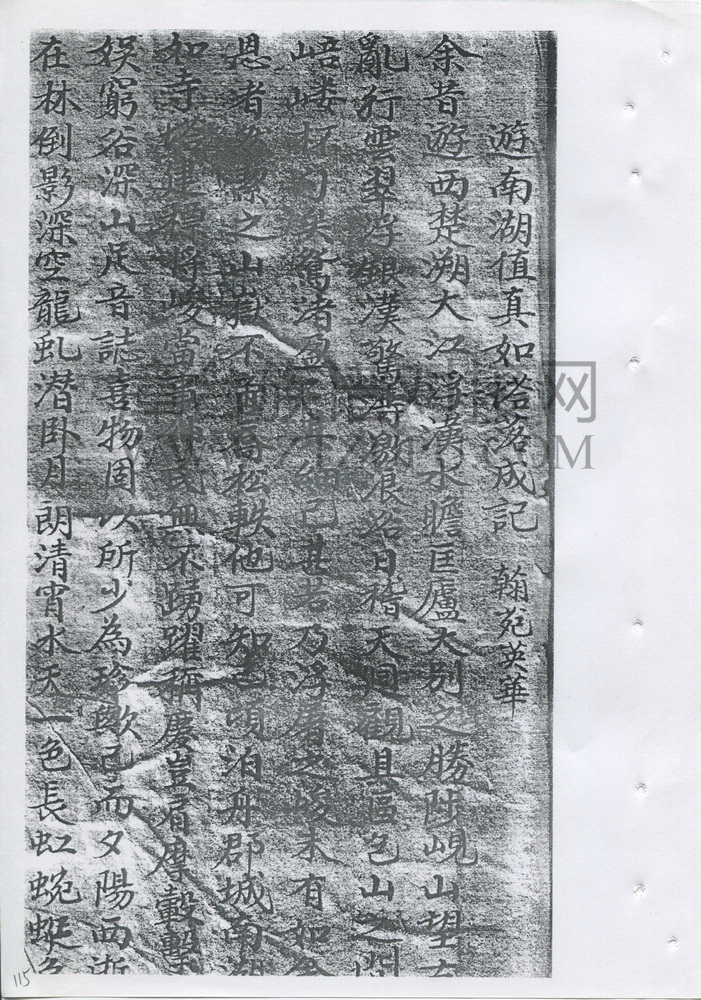 遊南湖值真如塔落成記 翰苑英華
余昔遊西楚溯大江浮漢水瞻匡廬大別之勝陟峴山望
亂行雲翠浮銀漢驚濤激浪浴日稽天迴觀具區包山之間
峿嶁杯勺矣鴛渚盈細已甚若乃浮屠之峻未有如
恩者之山嶽不啻高松軼他可知已頃泊舟郡城南湖
如寺塔建標將峻當興不踴躍稱慶豈肩摩轂擊
娛窮谷深山足音誌喜物固以所少為珍歟已而夕陽西逝
在林倒影深空龍虬潛臥月朗清宵水天一色長虹蜿蜒
115